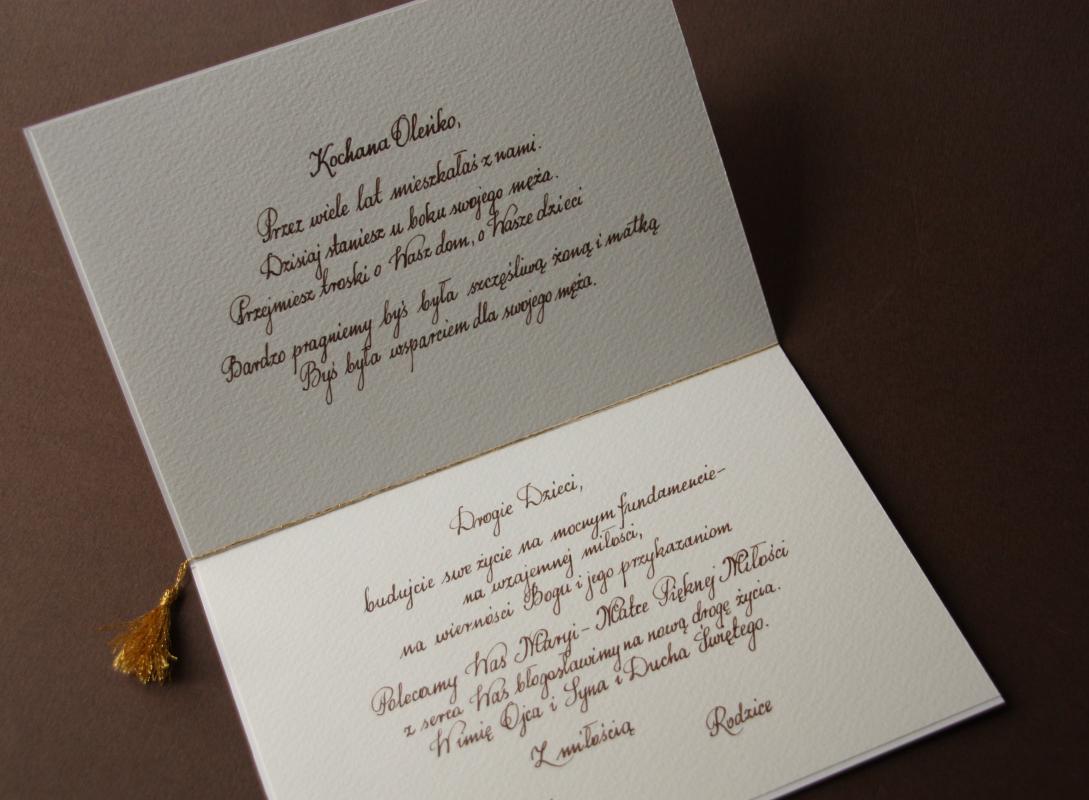 Kochana Oleńko,
Przez wiele lat mieszkałaś z nami.
Dzisiaj staniesz u boku swojego męża.
Przejmiesz troski o Wasz dom, o Wasze dzieci
Bardzo pragniemy byś była szczęśliwą żoną i matką
Byś była wsparciem dla swojego męża.
Drogie Dzieci,
budujcie swe życie na mocnym fundamencie–
na wzajemnej miłości,
na wierności Bogu i jego przykazaniom
Polecamy Was Maryi – Matce Pięknej Miłości
z serca Was błogosławimy na nową drogę życia.
W imię Ojca i Syna i Ducha Świętego.
Z miłością Rodzice